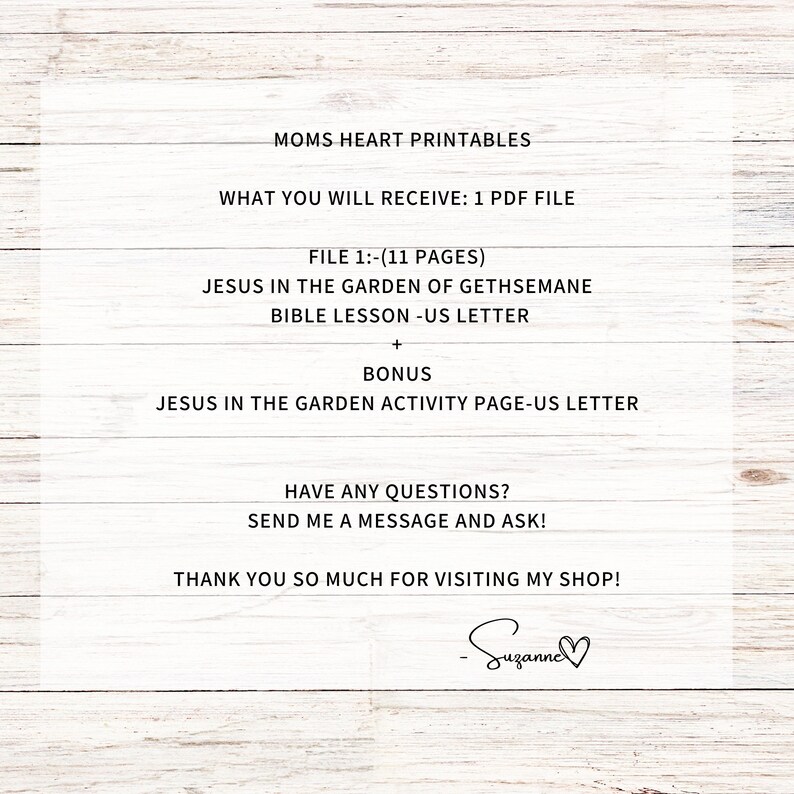 MOMS HEART PRINTABLES
WHAT YOU WILL RECEIVE: 1 PDF FILE
FILE 1:-(11 PAGES)
JESUS IN THE GARDEN OF GETHSEMANE
BIBLE LESSON -US LETTER
+
BONUS
JESUS IN THE GARDEN ACTIVITY PAGE-US LETTER
HAVE ANY QUESTIONS?
SEND ME A MESSAGE AND ASK!
THANK YOU SO MUCH FOR VISITING MY SHOP!
- Suzanne